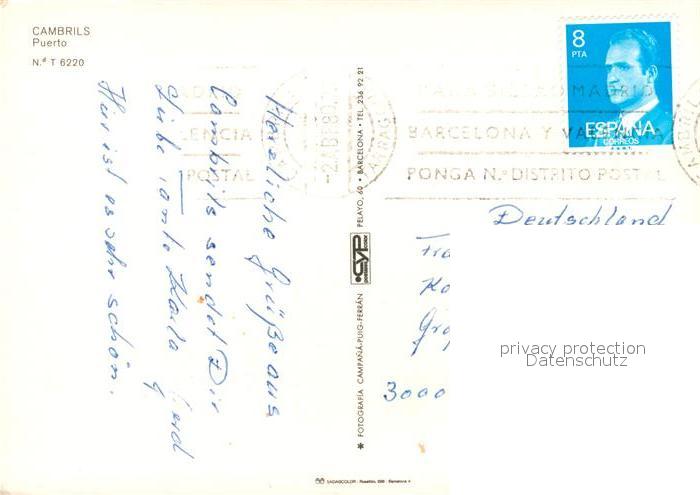 CAMBRILS
Puerto
N.º T 6220
Herzliche Grüße aus
Cambrils sendet Dir
Liebe Tante Karla Gerd
Hier ist es sehr schön.
✱ FOTOGRAFÍA CAMPAÑÁ-PUIG-FERRÁN
CYP
PELAYO, 60 • BARCELONA • TEL. 236 92 21
POSTAL
PARA BILBAO MADRID
BARCELONA Y VALENCIA
PONGA N.º DISTRITO POSTAL
8
PTA
ESPAÑA
CORREOS
Deutschland
Fra
Ka
Gra
3000
privacy protection
Datenschutz